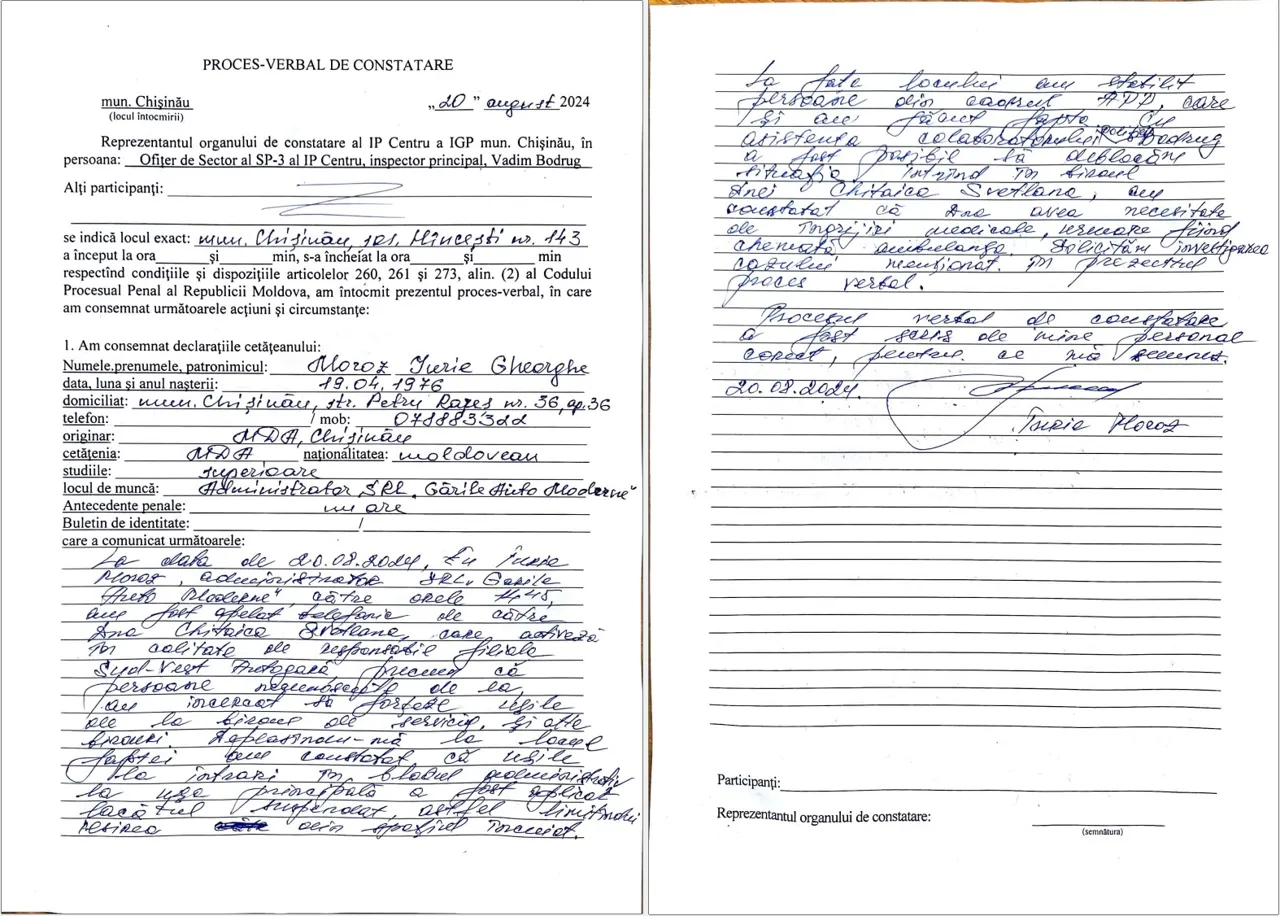 PROCES-VERBAL DE CONSTATARE
mun. Chișinău „20” august 2024
(locul întocmirii)
Reprezentantul organului de constatare al IP Centru a IGP mun. Chișinău, în
persoana: Ofițer de Sector al SP-3 al IP Centru, inspector principal, Vadim Bodrug
Alți participanți:
se indică locul exact: mun. Chișinău, șos. Hîncești nr. 143
a început la ora și min, s-a încheiat la ora și min
respectînd condițiile și dispozițiile articolelor 260, 261 și 273, alin. (2) al Codului
Procesual Penal al Republicii Moldova, am întocmit prezentul proces-verbal, în care
am consemnat următoarele acțiuni și circumstanțe:
1. Am consemnat declarațiile cetățeanului:
Numele,prenumele, patronimicul: Moroz Iurie Gheorghe
data, luna și anul nașterii: 19.04.1976
domiciliat: mun. Chișinău, str. Petru Rareș nr. 36, ap.36
telefon: / mob: 078883322
originar: MDA, Chișinău
cetățenia: MDA naționalitatea: moldovean
studiile: superioare
locul de muncă: Administrator SRL „Gările Auto Moderne”
Antecedente penale: nu are
Buletin de identitate: /
care a comunicat următoarele:
La data de 20.08.2024, Eu Iurie
Moroz, administrator SRL „Garile
Auto Moderne”, către orele
am fost apelat telefonic de către
Dna Chitaica Svetlana, care activeză
în calitate de responsabil filiale
Sud-Vest Autogară, precum că
persoane necunoscute de la,
au încercat să forțeze ușile
de la biroul de serviciu, și alte
birouri. Deplasîndu-mă la locul
faptei am constatat, că ușile
la intrari în blocul administrativ
la ușa principală a fost aplicat
lacătul suspendat, astfel
ieșirea din spațiul încuiat.
La fața locului am stabilit
persoane din cadrul APP, care
și au făcut fapta. Cu
asistența colaboratorului poliției Bodrug
a fost posibil să deblocăm
situația. Intrînd în biroul
Dnei Chitaica Svetlana, am
constatat că Dna avea necesitate
de îngrijiri medicale, urmare fiind
chemată ambulanța. Solicităm investigarea
cazului menționat. în prezentul
proces verbal.
Procesul verbal de constatare
a fost scris de mine personal
corect, pentru ce mă semnez.
20.08.2024.
Iurie Moroz
Participanți:
Reprezentantul organului de constatare:
(semnătura)